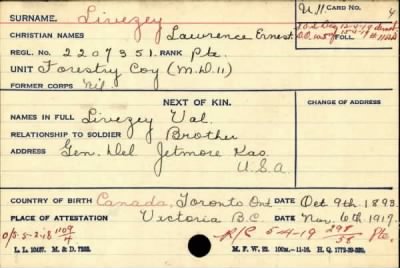 SURNAME. Livezey U11 CARD NO. 4
CHRISTIAN NAMES Lawrence Ernest FOLL.
REGL. NO. 2207351. RANK Pte.
UNIT Forestry Coy (M.D.11)
FORMER CORPS Nil.
NEXT OF KIN. CHANGE OF ADDRESS
NAMES IN FULL Livezey Val.
RELATIONSHIP TO SOLDIER Brother
ADDRESS Gen. Del Jetmore Kas.
U.S.A.
COUNTRY OF BIRTH Canada, Toronto Ont DATE Oct. 9th. 1893.
PLACE OF ATTESTATION Victoria B.C. DATE Nov. 6th 1917.
O/S. 5-2-18 1109/4 R/C 5-4-19 298/58 Pte.
L. L. 10467. M. & D. 7593. M. F. W. 22. 100m.—11-16. H. Q. 1772-39-339.